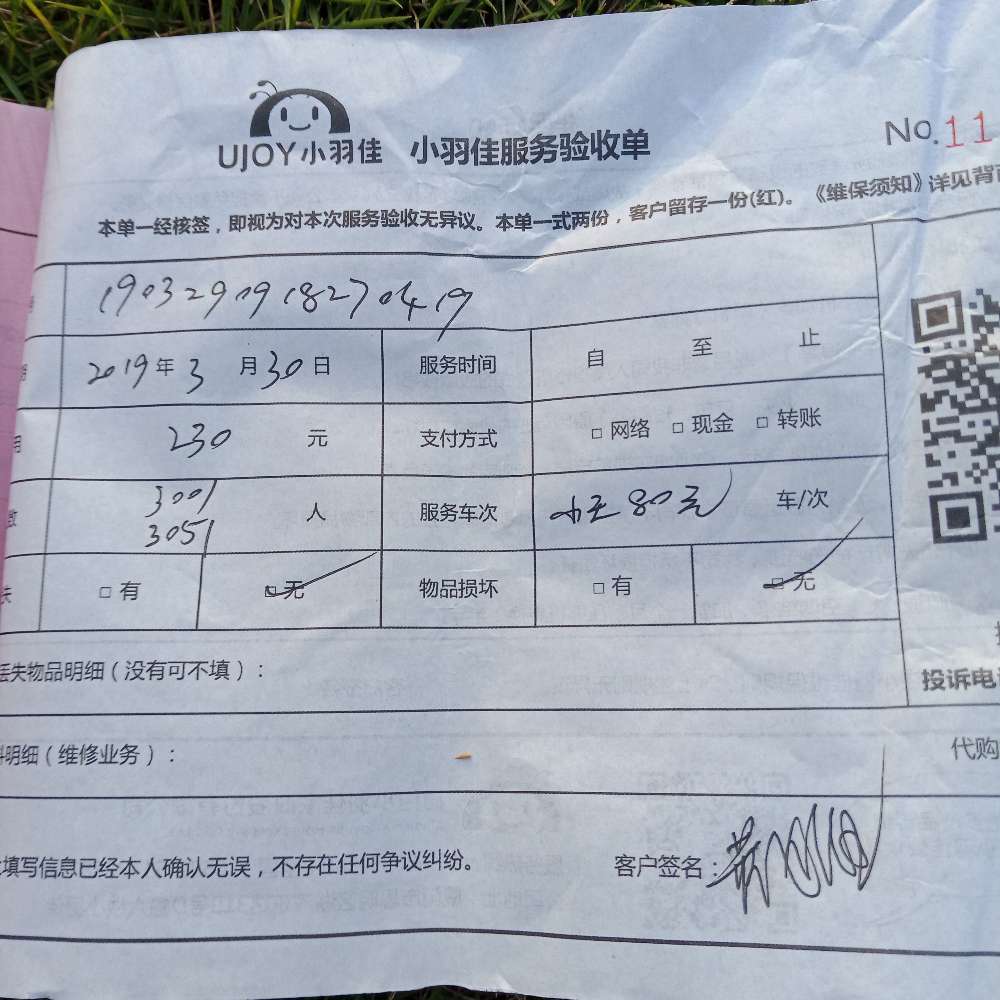 UJOY小羽佳 小羽佳服务验收单 No.11
本单一经核签，即视为对本次服务验收无异议。本单一式两份，客户留存一份(红)。《维保须知》详见背
1903290918270419
2019年3月30日 服务时间 自 至 止
230 元 支付方式 □ 网络 □ 现金 □ 转账
3001
3051 人 服务车次 80元 车/次
□ 有 □ 无 物品损坏 □ 有 □ 无
丢失物品明细（没有可不填）：
投诉电
明细（维修业务）：
代购
填写信息已经本人确认无误，不存在任何争议纠纷。 客户签名：